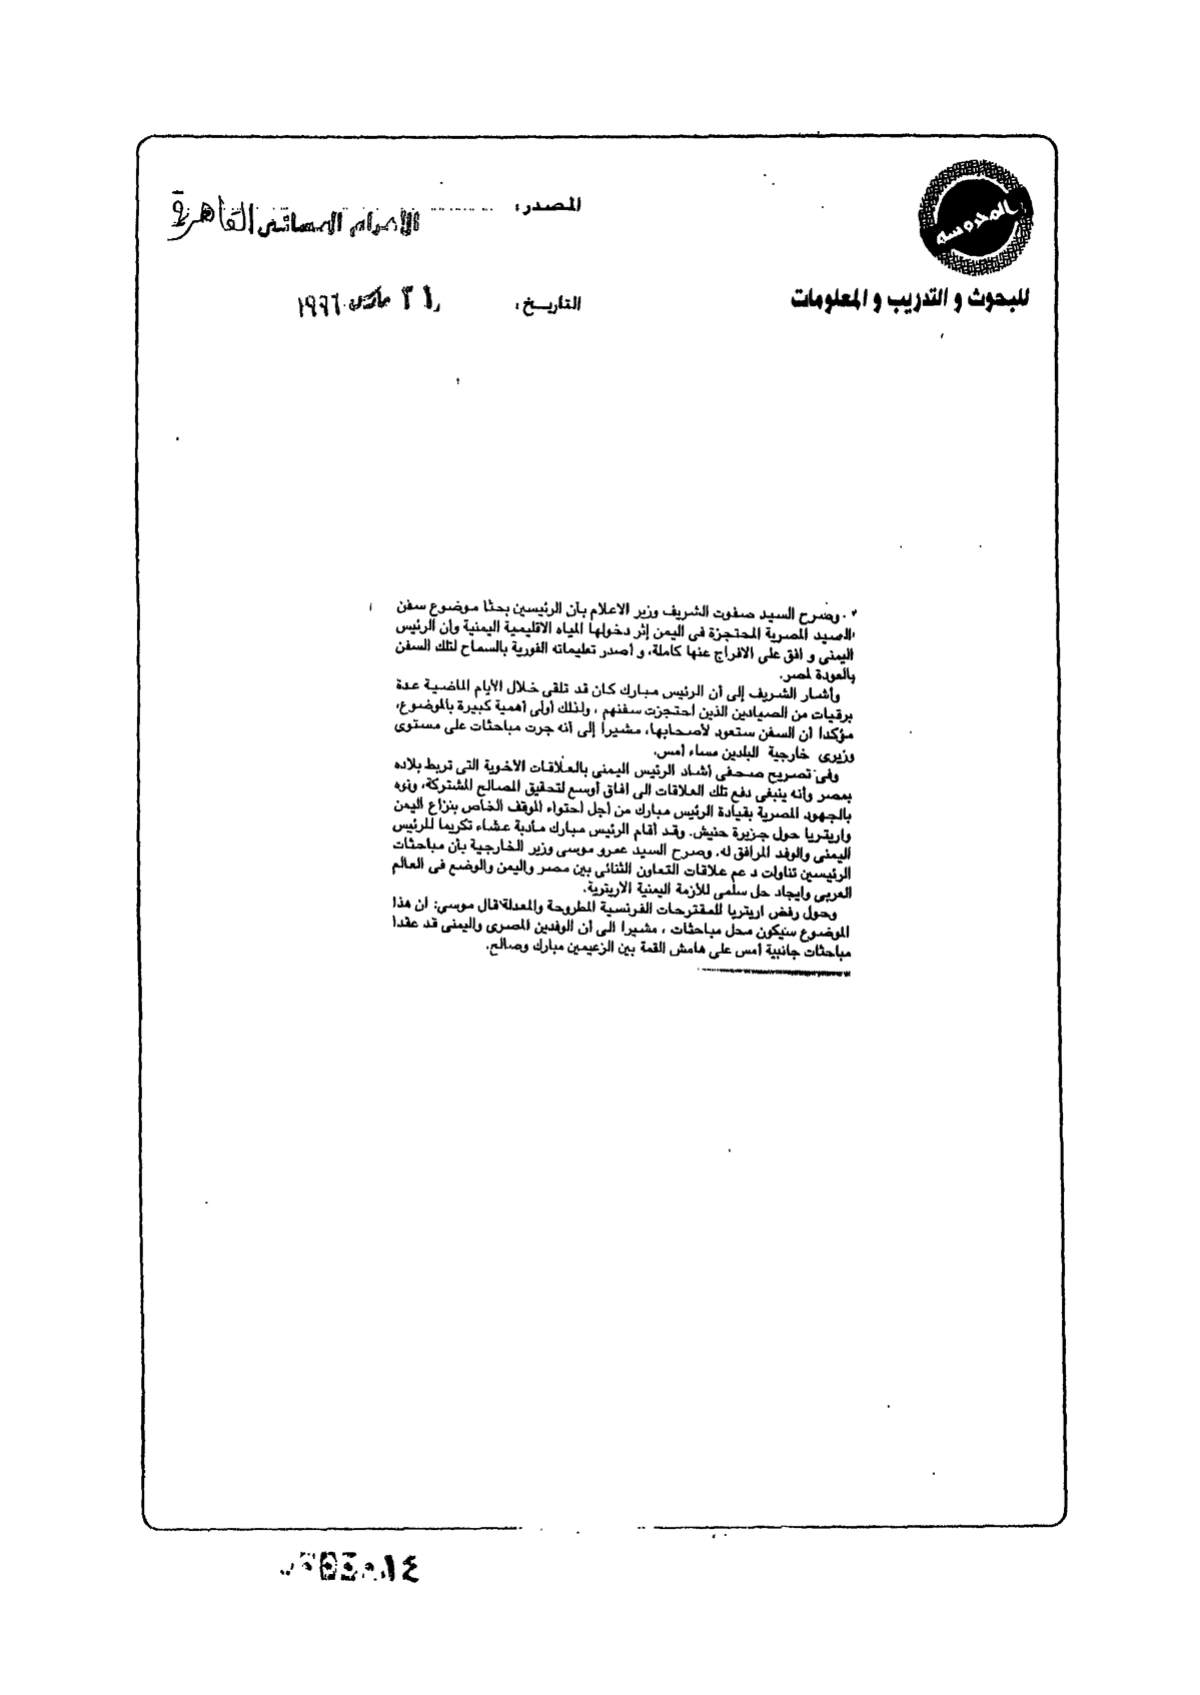 المحروسة
للبحوث و التدريب و المعلومات
المصدر: الأهرام المسائى القاهرة
التاريخ: ٢١ مارس ١٩٩٦
وصرح السيد صفوت الشريف وزير الاعلام بأن الرئيسين بحثا موضوع سفن
الصيد المصرية المحتجزة فى اليمن إثر دخولها المياه الاقليمية اليمنية وأن الرئيس
اليمنى و افق على الافراج عنها كاملة، و أصدر تعليماته الفورية بالسماح لتلك السفن
بالعودة لمصر.
وأشار الشريف إلى أن الرئيس مبارك كان قد تلقى خلال الأيام الماضية عدة
برقيات من الصيادين الذين احتجزت سفنهم ، ولذلك أولى أهمية كبيرة بالموضوع،
مؤكدا أن السفن ستعود لأصحابها، مشيرا إلى أنه جرت مباحثات على مستوى
وزيرى خارجية البلدين مساء أمس.
وفى تصريح صحفى أشاد الرئيس اليمنى بالعلاقات الأخوية التى تربط بلاده
بمصر وأنه ينبغى دفع تلك العلاقات الى افاق أوسع لتحقيق المصالح المشتركة، ونوه
بالجهود المصرية بقيادة الرئيس مبارك من أجل احتواء الموقف الخاص بنزاع اليمن
واريتريا حول جزيرة حنيش. وقد أقام الرئيس مبارك مأدبة عشاء تكريما للرئيس
اليمنى والوفد المرافق له. وصرح السيد عمرو موسى وزير الخارجية بأن مباحثات
الرئيسين تناولت د عم علاقات التعاون الثنائى بين مصر واليمن والوضع فى العالم
العربى وايجاد حل سلمى للأزمة اليمنية الاريترية.
وحول رفض اريتريا للمقترحات الفرنسية المطروحة والمعدلة قال موسى: ان هذا
الموضوع سيكون محل مباحثات ، مشيرا الى أن الوفدين المصرى واليمنى قد عقدا
مباحثات جانبية أمس على هامش القمة بين الزعيمين مبارك وصالح.